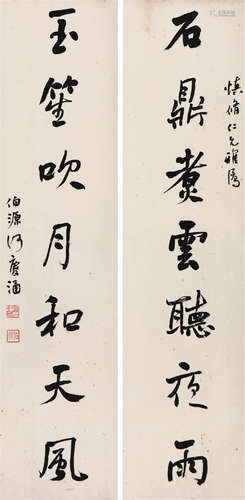 慎脩仁兄雅屬
石鼎煮雲聽夜雨
玉笙吹月和天風
伯源何慶涵